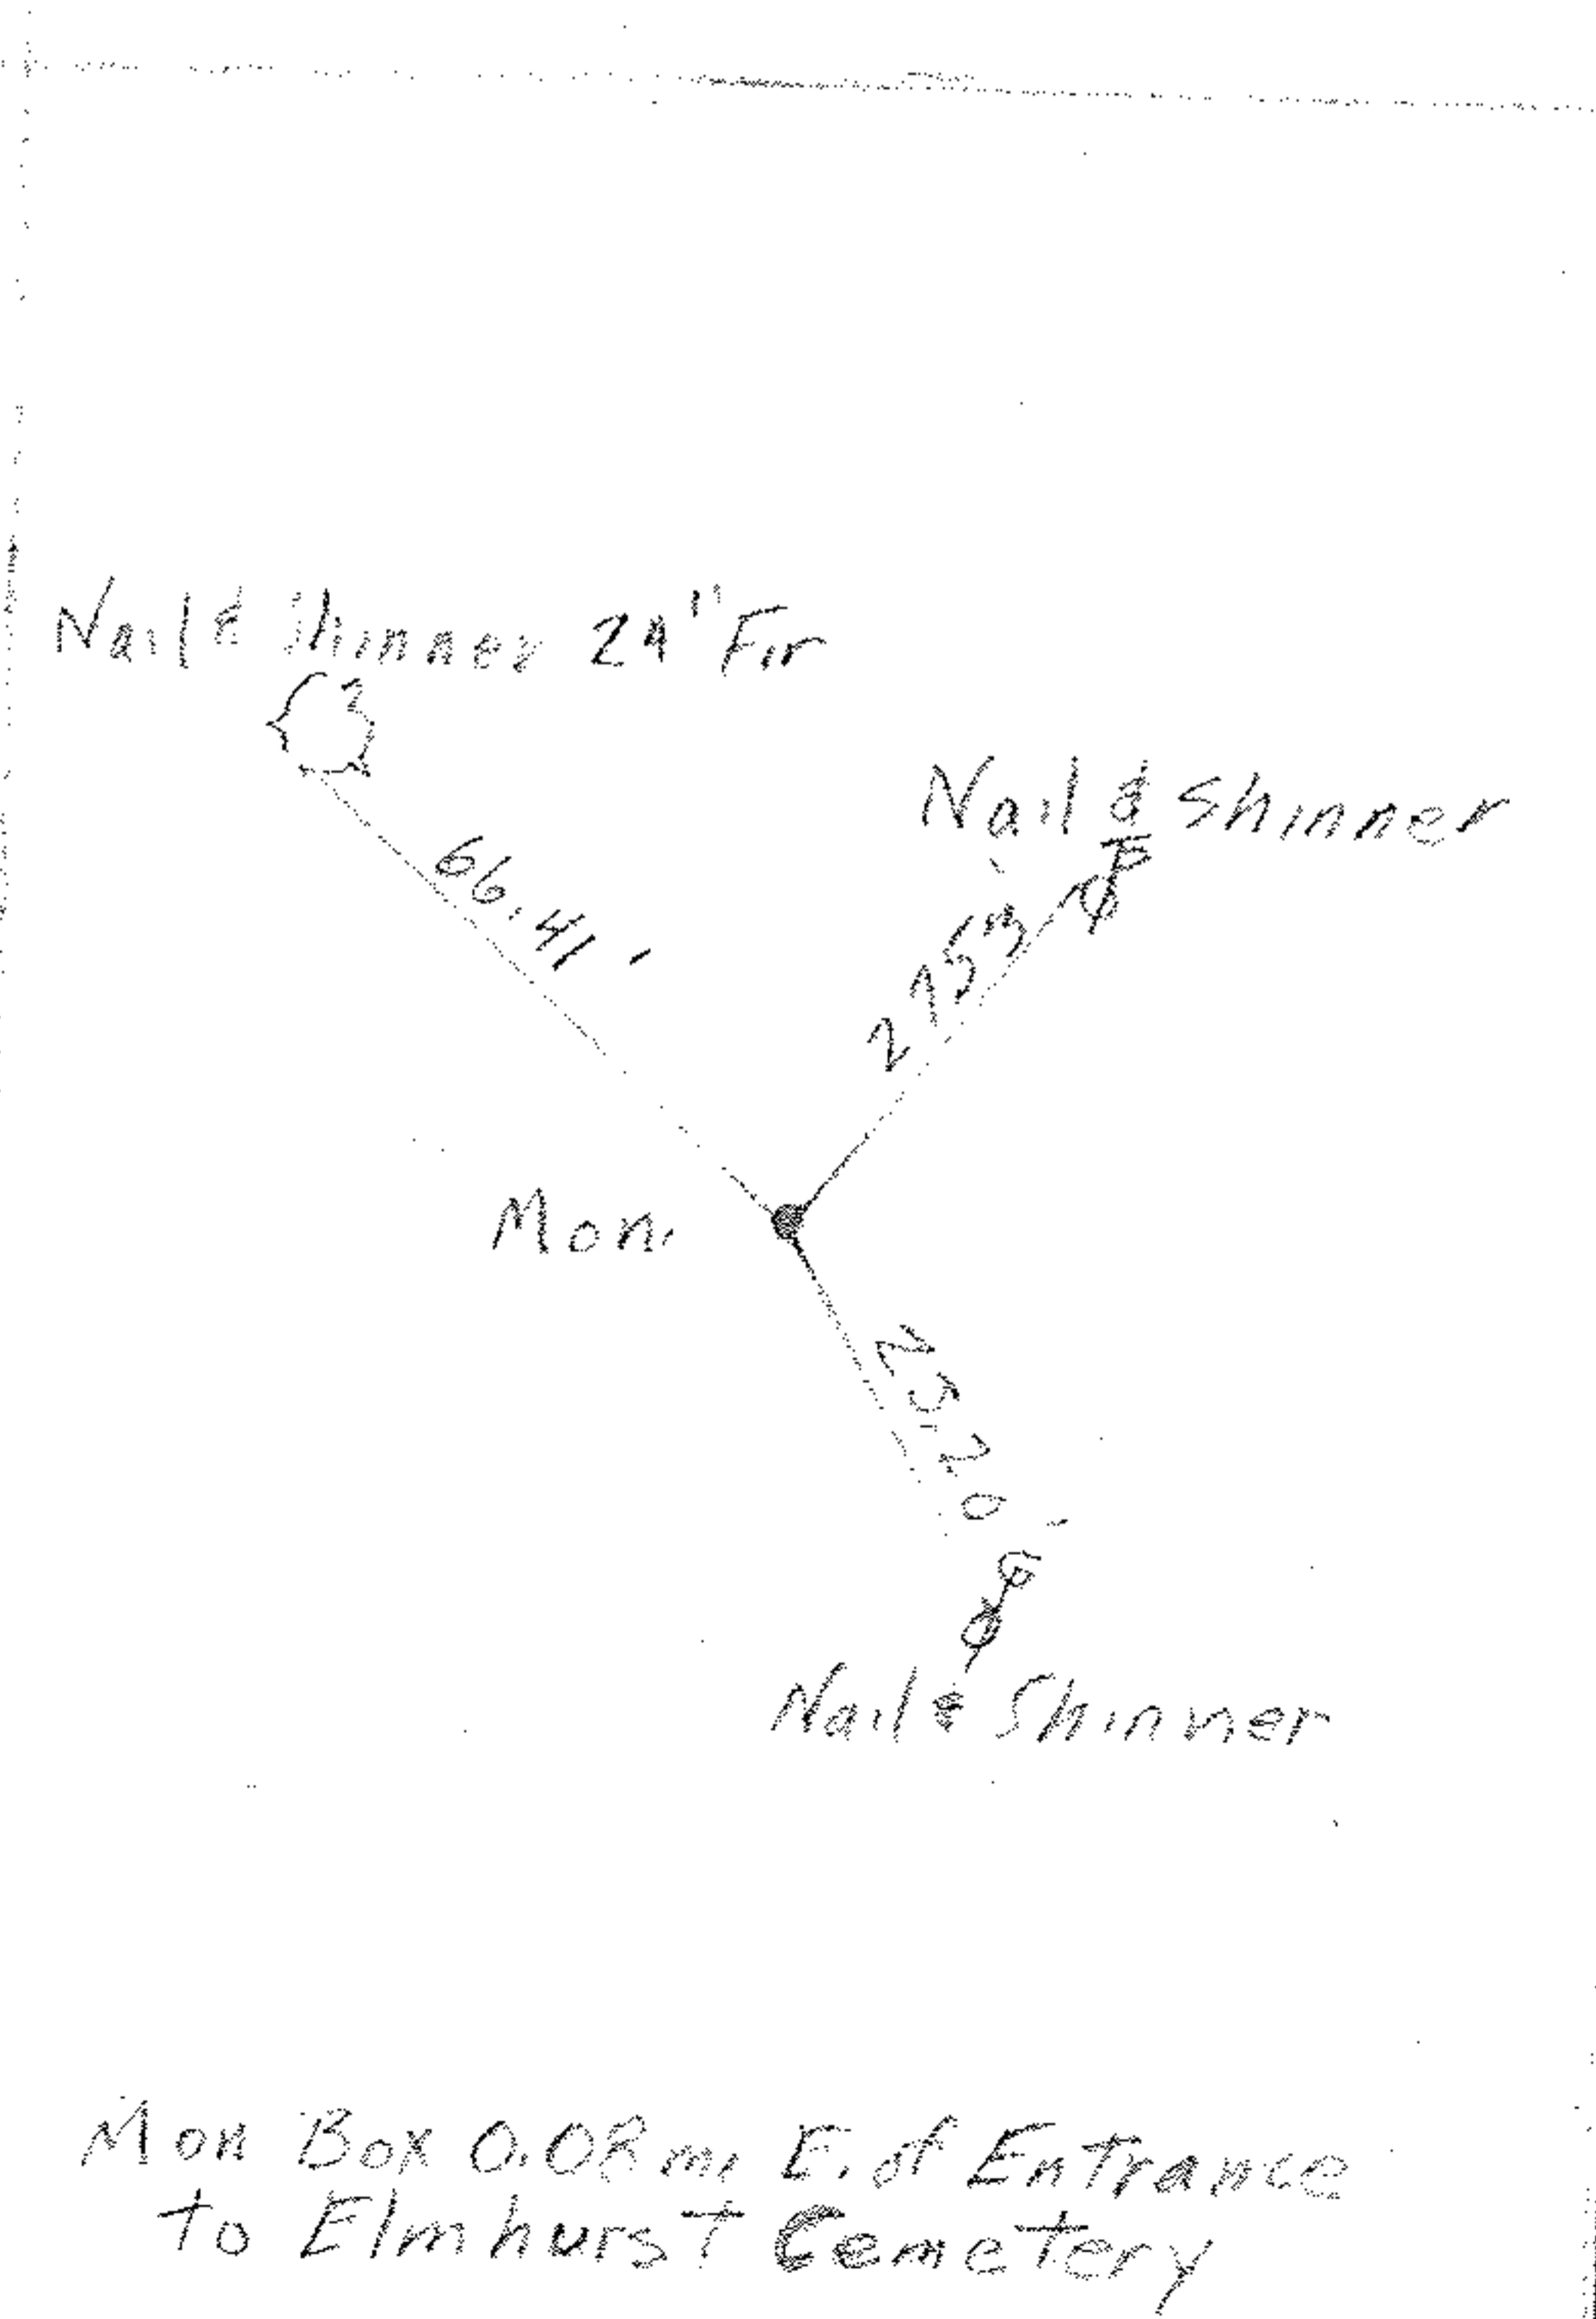 Nail & Shinner 24" Fir
Nail & Shinner
66.41'
Mon.
25.20'
Nail & Shinner
Mon Box 0.08 mi E. of Entrance
to Elmhurst Cemetery